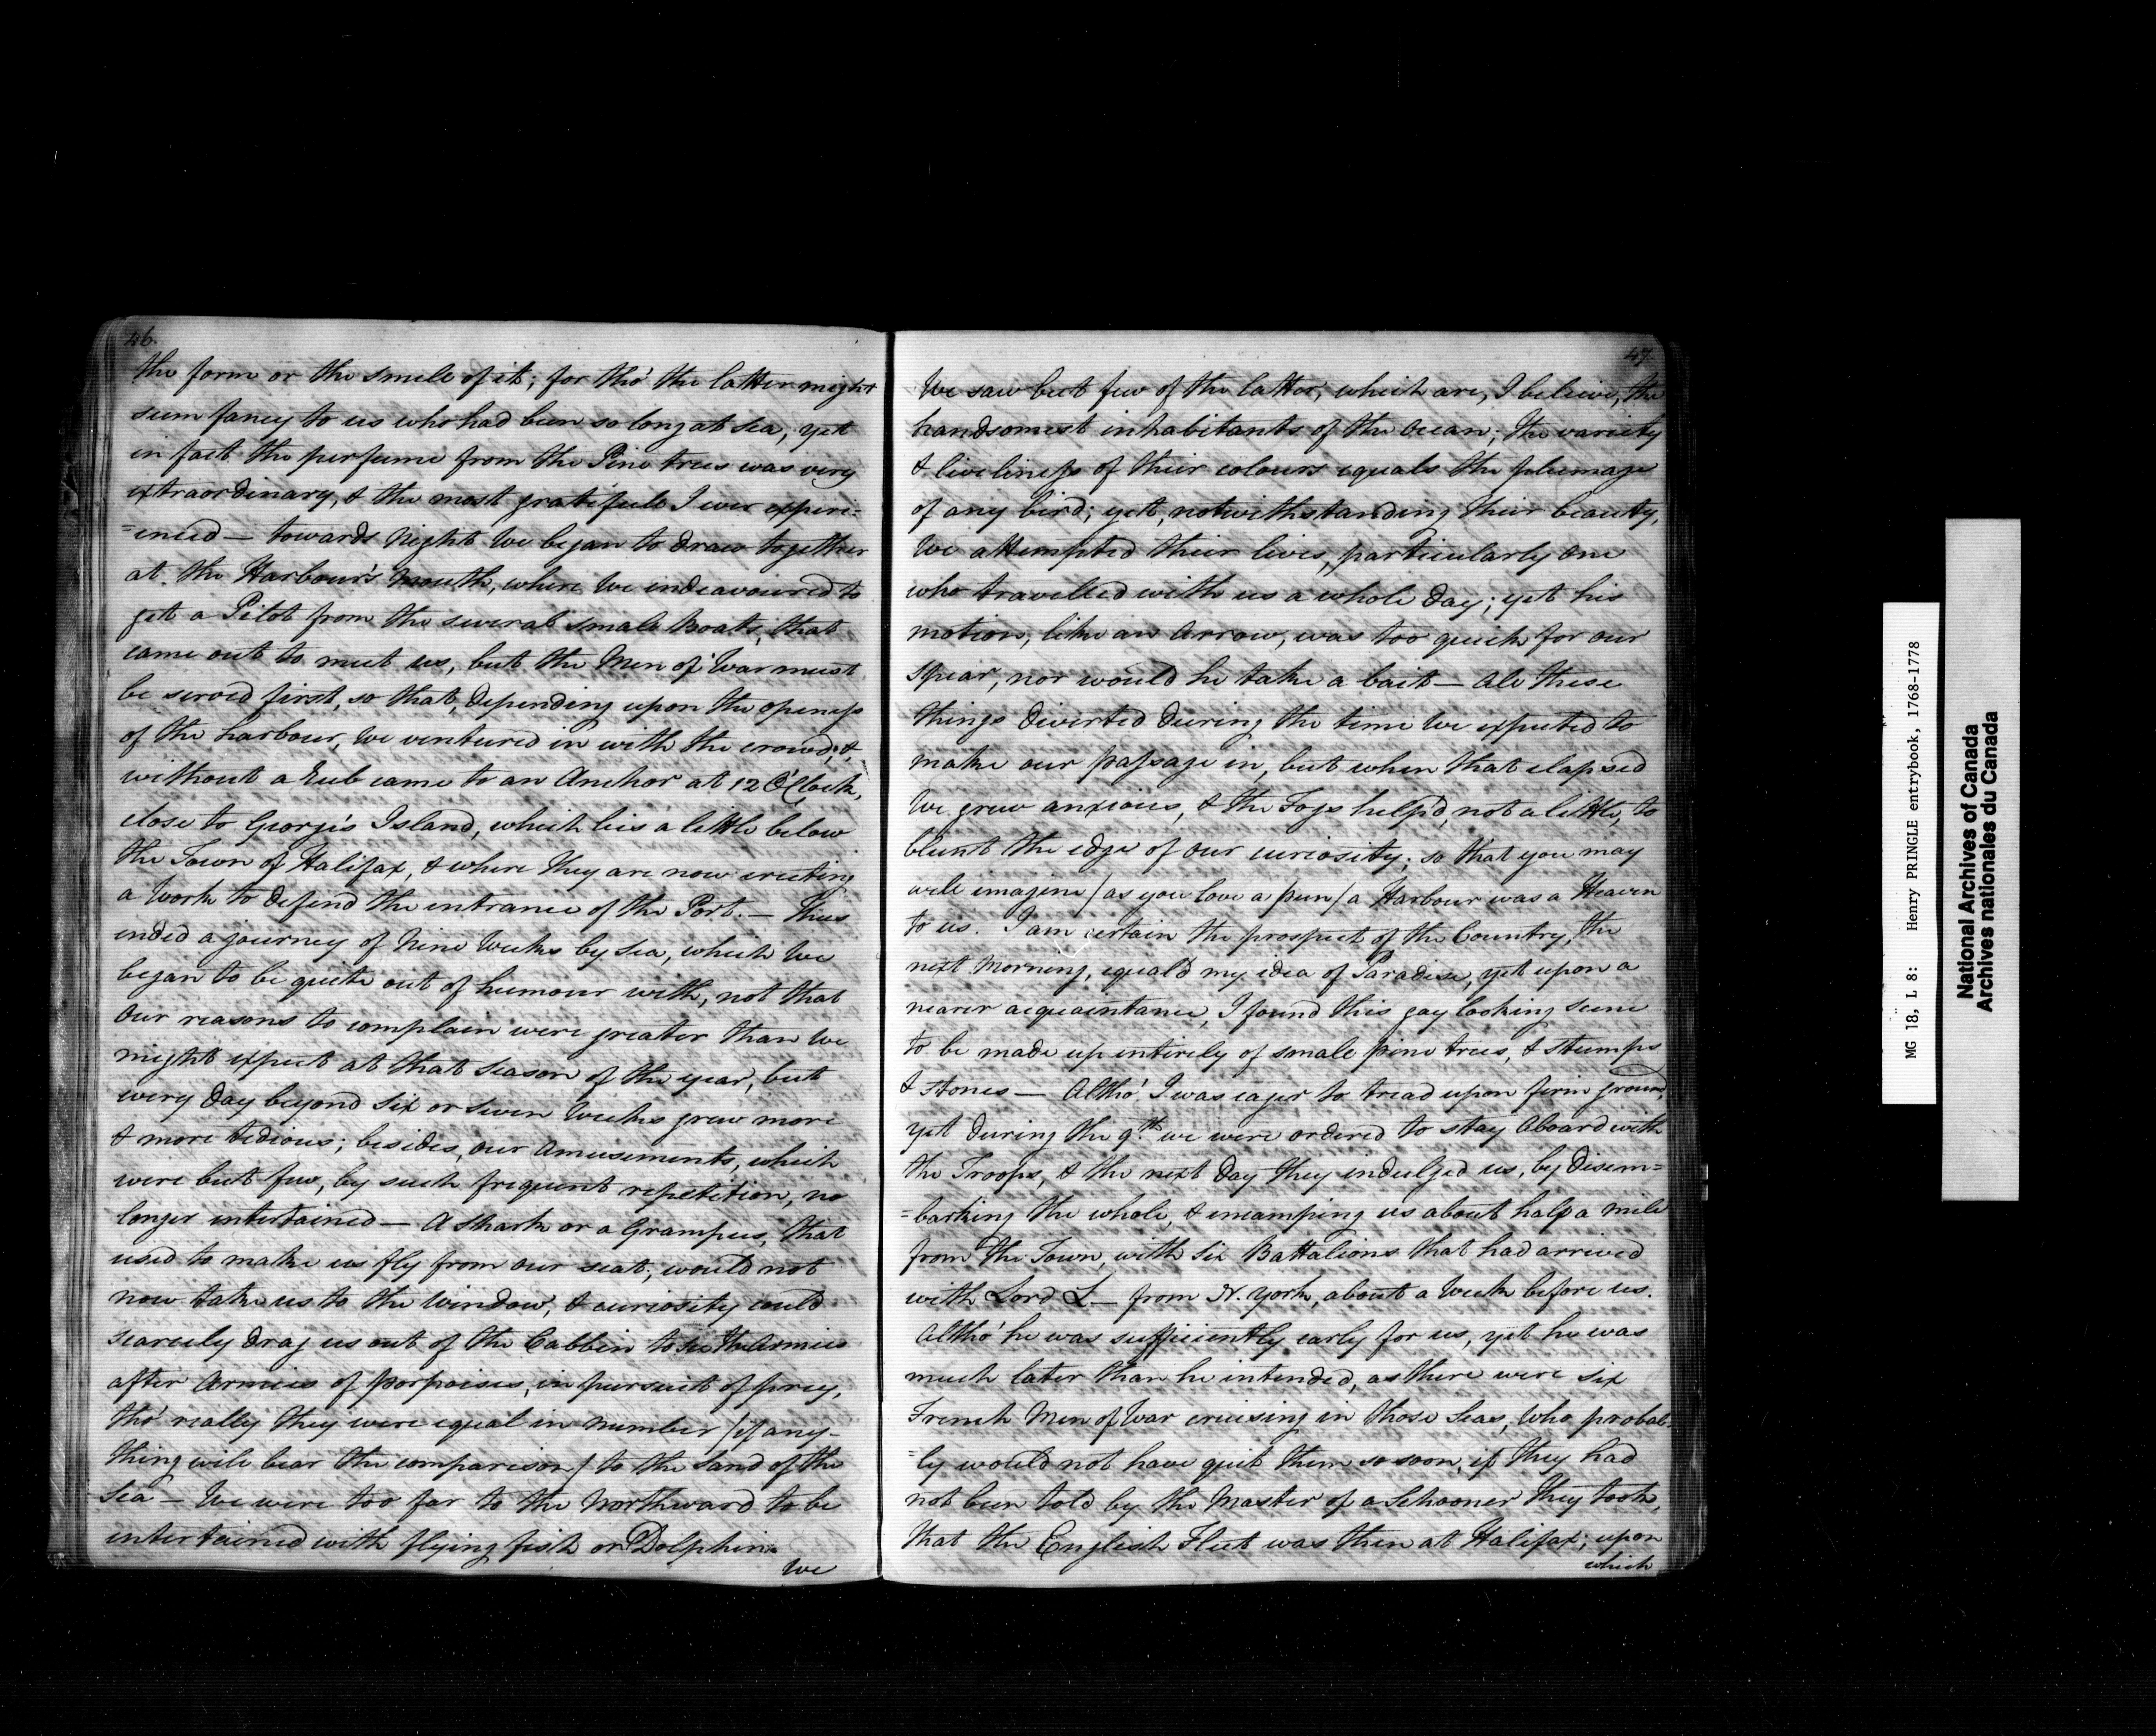 46.
the form or the smell of it; for tho' the latter might
seem fancy to us who had been so long at Sea, yet
in fact the perfume from the Pine trees was very
extraordinary, & the most gratefull I ever experi=
=enced — towards Night We began to draw together
at the Harbour's Mouth, where We endeavoured to
get a Pilot from the several small Boats, that
came out to meet us, but the Men of War must
be served first, so that, depending upon the openess
of the harbour, We ventured in with the crowd, &
without a Rub came to an Anchor at 12 O'Clock,
close to George's Island, which lies a little below
the Town of Halifax, & where they are now erecting
a Work to defend the entrance of the Port. — Thus
ended a journey of Nine Weeks by Sea, which We
began to be quite out of humour with, not that
Our reasons to complain were greater than We
might expect at that Season of the year, but
every Day beyond Six or Seven Weeks grew more
& more tedious; besides, our Amusements, which
were but few, by such frequent repetition, no
longer entertained — A Shark or a Grampus, that
used to make us fly from our seat, would not
now take us to the Window, & curiosity could
scarcely drag us out of the Cabbin to see the Armies
after Armies of porpoises, in pursuit of prey,
tho' really they were equal in number /if any-
thing will bear the comparison/ to the Sand of the
Sea — We were too far to the Northward to be
entertained with flying fish or Dolphin.
We
47
We saw but few of the latter, which are, I believe, the
handsomest inhabitants of the Ocean; the variety
& liveliness of their colours equals the plumage
of any bird; yet, notwithstanding their beauty,
We attempted their lives, particularly One
who travelled with us a whole Day; yet his
motion, like an Arrow, was too quick for our
Spear, nor would he take a bait — All these
things diverted during the time We expected to
make our passage in, but when that elapsed
We grew anxious, & the Fogs help'd, not a little, to
blunt the edge of our curiosity; so that you may
well imagine /as you love a pun/ a Harbour was a Heaven
to us. I am certain the prospect of the Country, the
next Morning, equal'd my idea of Paradise, yet upon a
nearer acquaintance, I found this gay looking scene
to be made up entirely of small pine trees, & stumps
& stones — Altho' I was eager to tread upon firm ground,
yet during the 9.th we were ordered to stay Aboard with
the Troops, & the next Day they indulged us, by disem=
=barking the whole, & encamping us about half a mile
from the Town, with Six Battalions that had arrived
with Lord L— from N. York, about a Week before us.
Altho' he was sufficiently early for us, yet he was
much later than he intended, as there were Six
French Men of War cruising in those Seas, who probab-
=ly would not have quit them so soon, if they had
not been told by the Master of a Schooner they took,
that the English Fleet was then at Halifax; upon
which
MG 18, L 8: Henry PRINGLE entrybook, 1768-1778
National Archives of Canada
Archives nationales du Canada